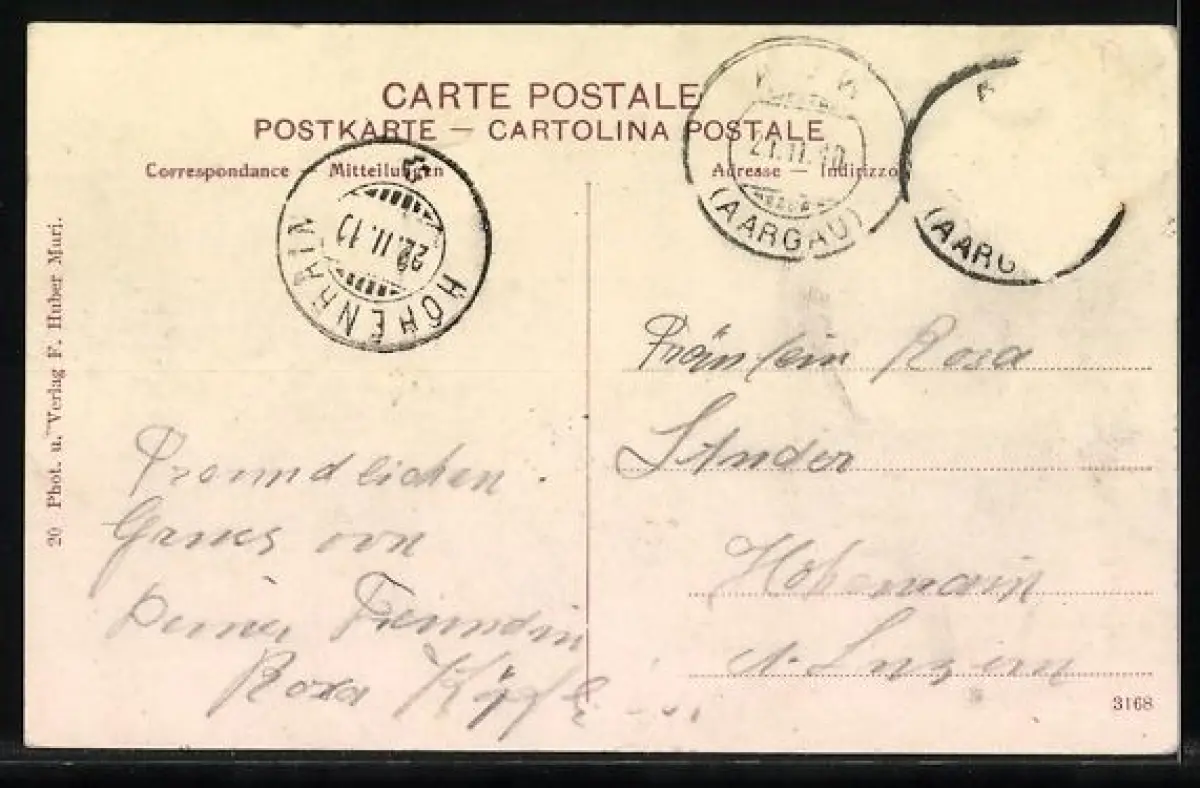 CARTE POSTALE
POSTKARTE — CARTOLINA POSTALE
Correspondance — Mitteilungen
Adresse — Indirizzo
HOHENRAIN
22.II.10
21.II.10
(AARGAU)
(AARG
20 Phot. u. Verlag F. Huber Muri.
Freundlichen
Gruss von
Deiner Freundin
Rosa
Fräulein Rosa
Hohenrain
Kt. Luzern
3168